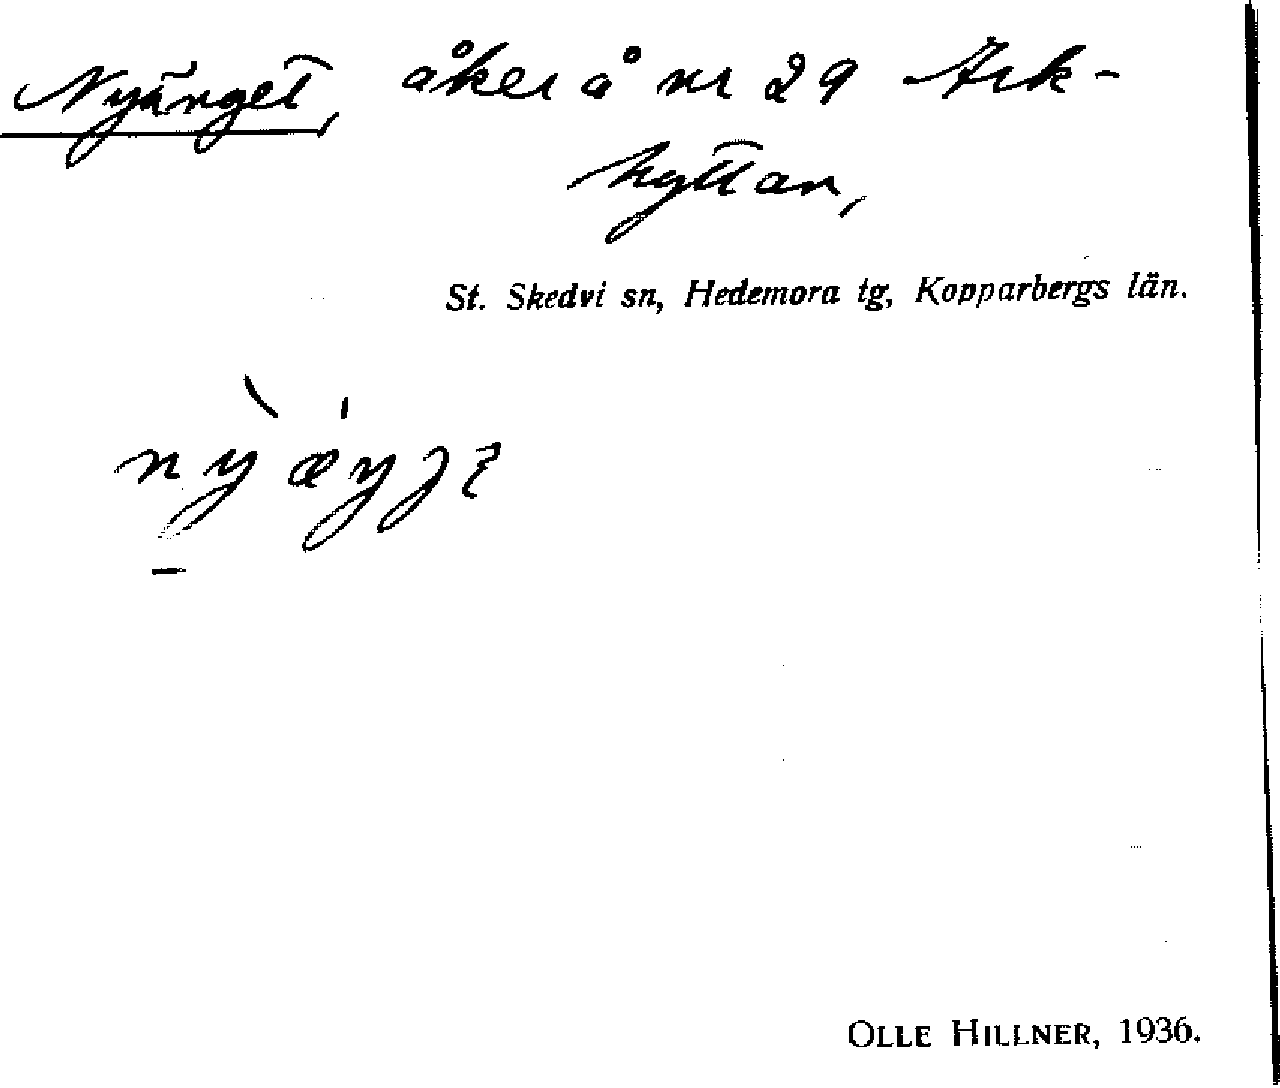 Nyänget, åker å nr 29 Ark-
hyttan,
St. Skedvi sn, Hedemora tg, Kopparbergs län.
OLLE HILLNER, 1936.